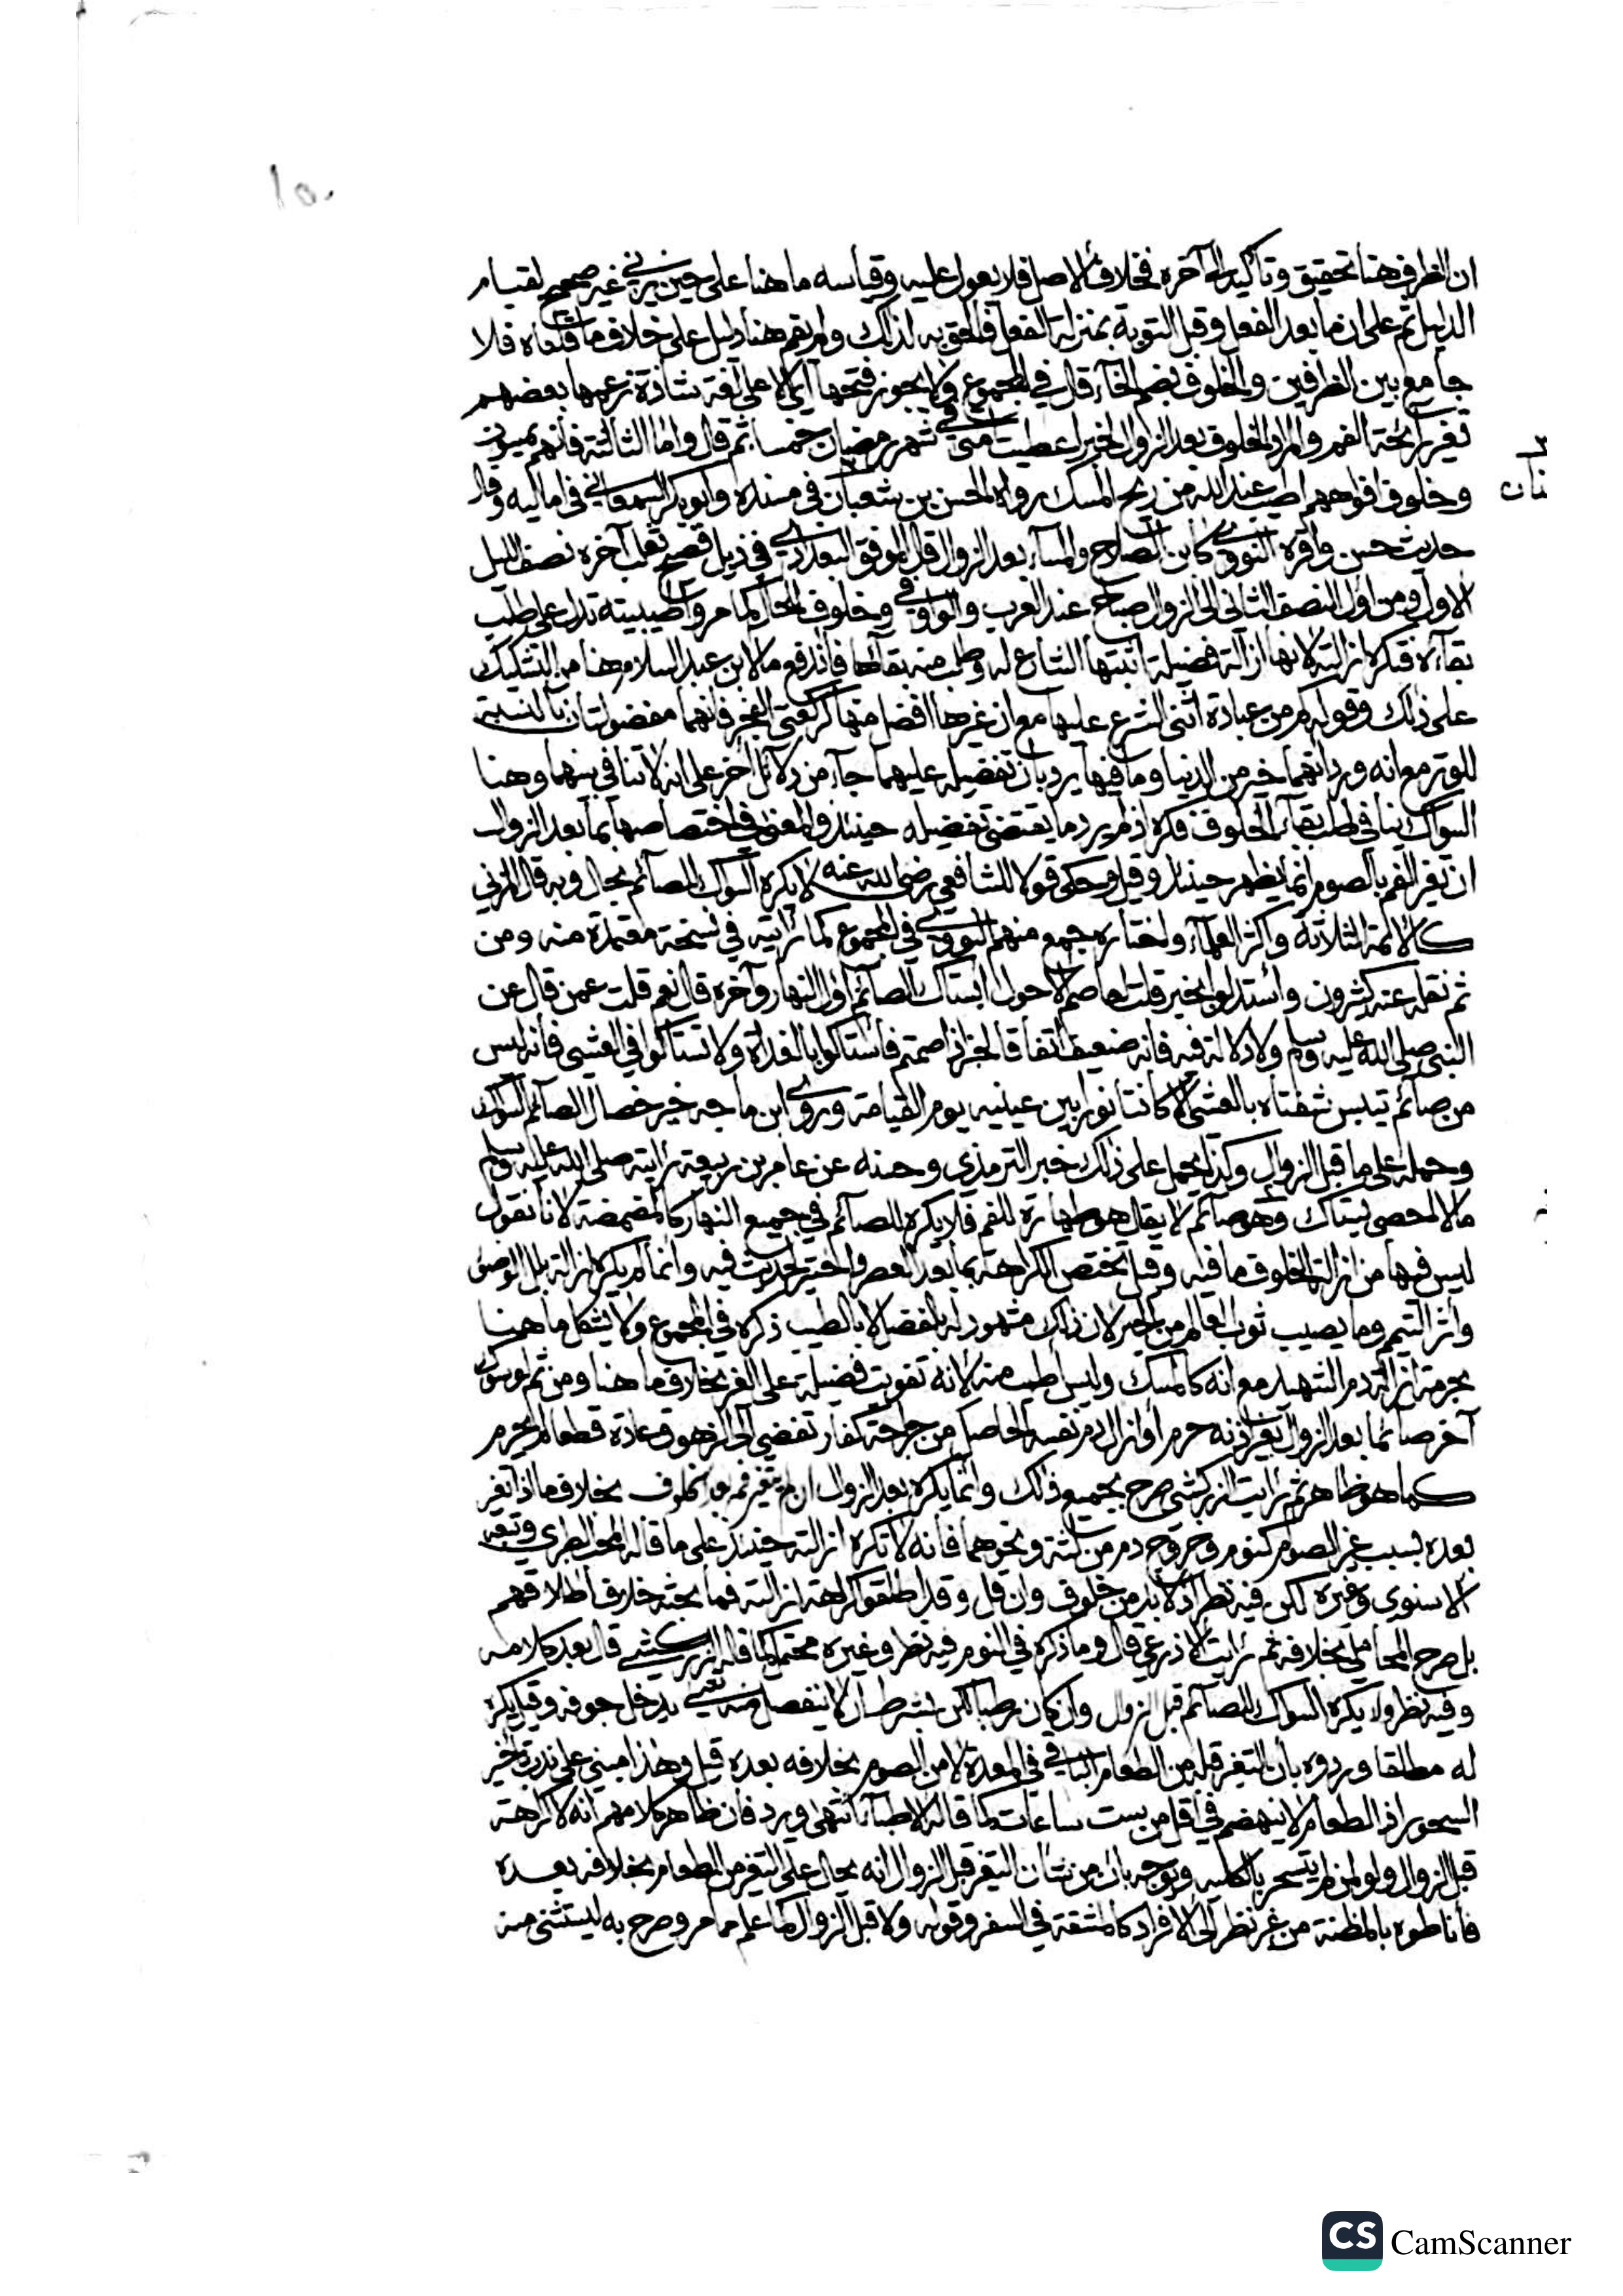 ١٥٠
ان الظرف هنا تحقيق وتأكيد الى آخره فخلاف الاصل فلا يعول عليه وقياسه ما هنا على حين يزني غير صحيح لقيام
الدليل ثم على ان ما بعد الفعل وقبل التوبة بمنزلة الفعل فالحق به لذلك ولم يقم هنا دليل على خلاف ما قلناه فلا
جامع بين الظرفين والخلوف بضم الخاء قال في المجموع ولا يجوز فتحها أي الا على لغة شاذة زعمها بعضهم
تغير رائحة الفم والمراد الخلوف بعد الزوال لخبر اعطيت امتي في شهر رمضان خمسا ثم قال واما الثانية فانهم يمسون
وخلوف افواههم اطيب عند الله من ريح المسك رواه الحسن بن سفيان في مسنده وابو بكر السمعاني في اماليه وقال
حديث حسن واقره النووي كابن الصلاح والمساء بعد الزوال قال الموفق البغدادي في ذيل فصيح ثعلب آخره نصف الليل
الاول ومن اول النصف الثاني الى الزوال صباح عند العرب والواو في وخلوف للحال كما مر واطيبيته تدل على طلب
بقائه فتكره ازالته لانها ازالة فضيلة اثبتها الشارع له وطلب منه بقاءها فاندفع ما لابن عبد السلام هنا من التشكيك
على ذلك وقوله كم من عبادة اثنى الشرع عليها مع ان غيرها افضل منها كركعتي الفجر فانهما مفضولتان بالنسبة
للوتر مع انه ورد انهما خير من الدنيا وما فيها يرد بان تفضيله عليهما جاء من دلائل اخر على انه لا تنافي بينهما وهنا
السواك ينافي طلب بقاء الخلوف فكره اذ لم يرد ما يقتضي تفضيله حينئذ والمعنى في اختصاصها بما بعد الزوال
ان تغير الفم بالصوم انما يظهر حينئذ وقيل وحكي قولا للشافعي رضي الله عنه لا يكره السواك للصائم بحال وبه قال المزني
كالائمة الثلاثة واكثر العلماء واختاره جمع منهم النووي في المجموع كما رأيته في نسخة معتمدة منه ومن
ثم نقله عنه كثيرون واستدلوا بخبر قلت لعاصم الاحول ايستاك الصائم اول النهار وآخره قال نعم قلت عمن قال عن
النبي صلى الله عليه وسلم ولا دلالة فيه فانه ضعيف اتفاقا لخبر اذا صمتم فاستاكوا بالغداة ولا تستاكوا في العشي فانه ليس
من صائم تيبس شفتاه بالعشي الا كانتا نورا بين عينيه يوم القيامة وروى ابن ماجه خير خصال الصائم السواك
وحمله على ما قبل الزوال وكذا يحمل على ذلك خبر الترمذي وحسنه عن عامر بن ربيعة رأيته صلى الله عليه وسلم
ما لا احصي يستاك وهو صائم لا يقال هو طهارة للفم فلا يكره للصائم في جميع النهار كالمضمضة لانا نقول
ليس فيها من ازالة الخلوف ما فيه وقيل تختص الكراهة بما بعد العصر واختير لحديث فيه وانما لم يكره ازالة بلل الوضوء
واثر التيمم وما يصيب ثوب العالم من الحبر لان ذلك مشهود له بالفضل لا بالطيب ذكره في المجموع ولا يشكل ما هنا
بحرمة ازالة دم الشهيد مع انه كالمسك وليس اطيب منه لانه تفويت فضيلة على الغير بخلاف ما هنا ومن ثم لو سوك
آخر صائما بعد الزوال بغير اذنه حرم او ازال دم نفسه الحاصل من جراحة كفار تفضي الى الزهوق عادة قطعا لم يحرم
كما هو ظاهر ثم رأيت الزركشي صرح بجميع ذلك وانما يكره بعد الزوال ان لم يتغير فمه بغير الخلوف بخلاف ما اذا تغير
بعده بسبب غير الصوم كنوم وخروج دم من لثة ونحوهما فانه لا تكره ازالته حينئذ على ما قاله المحب الطبري وتبعه
الاسنوي وغيره لكن فيه نظر اذ لا بد من خلوف وان قل وقد اطلقوا كراهة ازالته فما بحثه خلاف اطلاقهم
بل صرح المحاملي بخلافه ثم رأيت الاذرعي قال وما ذكره في النوم فيه نظر وغيره محتمل كما قاله الزركشي قال بعد كلامه
وفيه نظر ولا يكره السواك للصائم قبل الزوال وان كان رطبا لكن بشرط ان لا ينفصل منه شيء يدخل جوفه وقيل يكره
له مطلقا وردوه بأن التغير قبله من الطعام الباقي في المعدة لا من الصوم بخلافه بعده قيل وهذا مبني على ندب تأخير
السحور اذ الطعام لا ينهضم في اقل من ست ساعات كما قاله الاطباء انتهى ويرد فان ظاهر كلامهم انه لا كراهة
قبل الزوال ولو لمن لم يتسحر بالكلية ويوجه بان من شأن التغير قبل الزوال انه يحال على التغير من الطعام بخلافه بعده
فأناطوه بالمظنة من غير نظر الى الافراد كالمشقة في السفر وقوله ولا قبل الزوال كما علم مما مر وصرح به ليستثنى منه
CS CamScanner